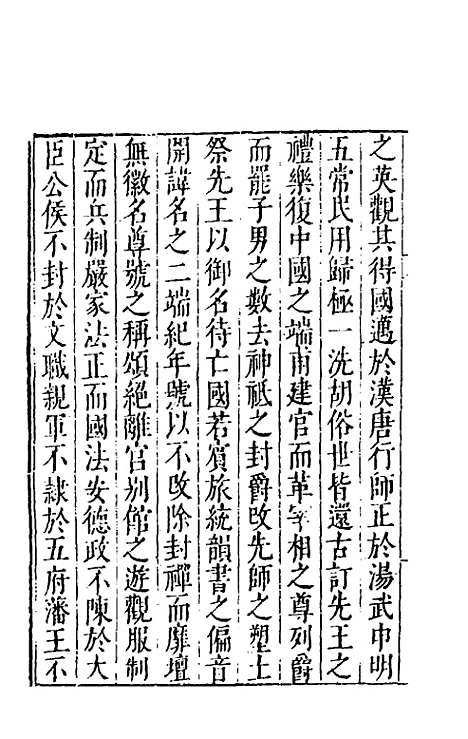 之英觀其得國邁於漢唐行師正於湯武申明
五常民用歸極一洗胡俗世皆還古訂先王之
禮樂復中國之端甫建官而革宰相之尊列爵
而罷子男之數去神祗之封爵改先師之塑土
祭先王以御名待亡國若賓旅統韻書之偏音
開諱名之二端紀年號以不改除封禪而靡壇
無徽名尊號之稱頌絕離宫别館之遊觀服制
定而兵制嚴家法正而國法安德政不陳於大
臣公侯不封於文職親軍不隷於五府潘王不